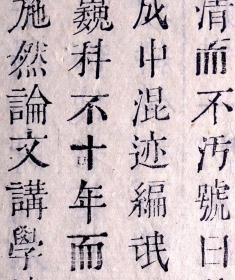 清而不汚號曰
成中混迹編氓
巍科不十年而
施然論文講學